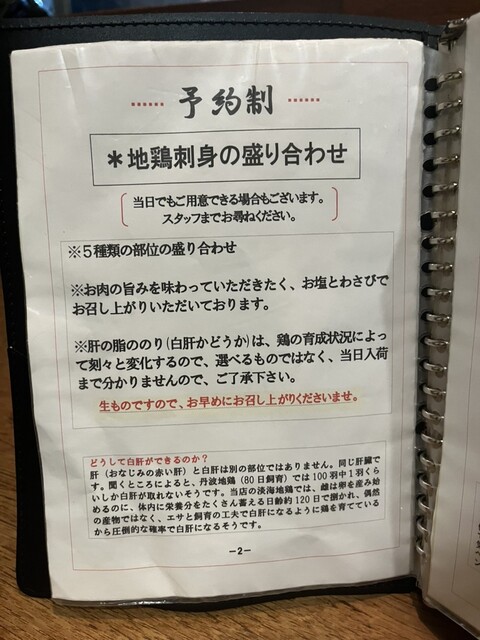 予約制
＊地鶏刺身の盛り合わせ
当日でもご用意できる場合もございます。
スタッフまでお尋ねください。
※５種類の部位の盛り合わせ
※お肉の旨みを味わっていただきたく、お塩とわさびで
お召し上がりいただいております。
※肝の脂ののり(白肝かどうか)は、鶏の育成状況によっ
て刻々と変化するので、選べるものではなく、当日入荷
まで分かりませんので、ご了承下さい。
生ものですので、お早めにお召し上がりくださいませ。
どうして白肝ができるのか？
肝（おなじみの赤い肝）と白肝は別の部位ではありません。同じ肝臓で
す。聞くところによると、丹波地鶏（80日飼育）では100羽中1羽くら
いしか白肝が取れないそうです。当店の淡海地鶏では、雌は卵を産み始
めるのに、体内に栄養分をたくさん蓄える日齢約120日で捌かれ、偶然
の産物ではなく、エサと飼育の工夫で白肝になるように鶏を育てている
から圧倒的な確率で白肝になるそうです。
－2－